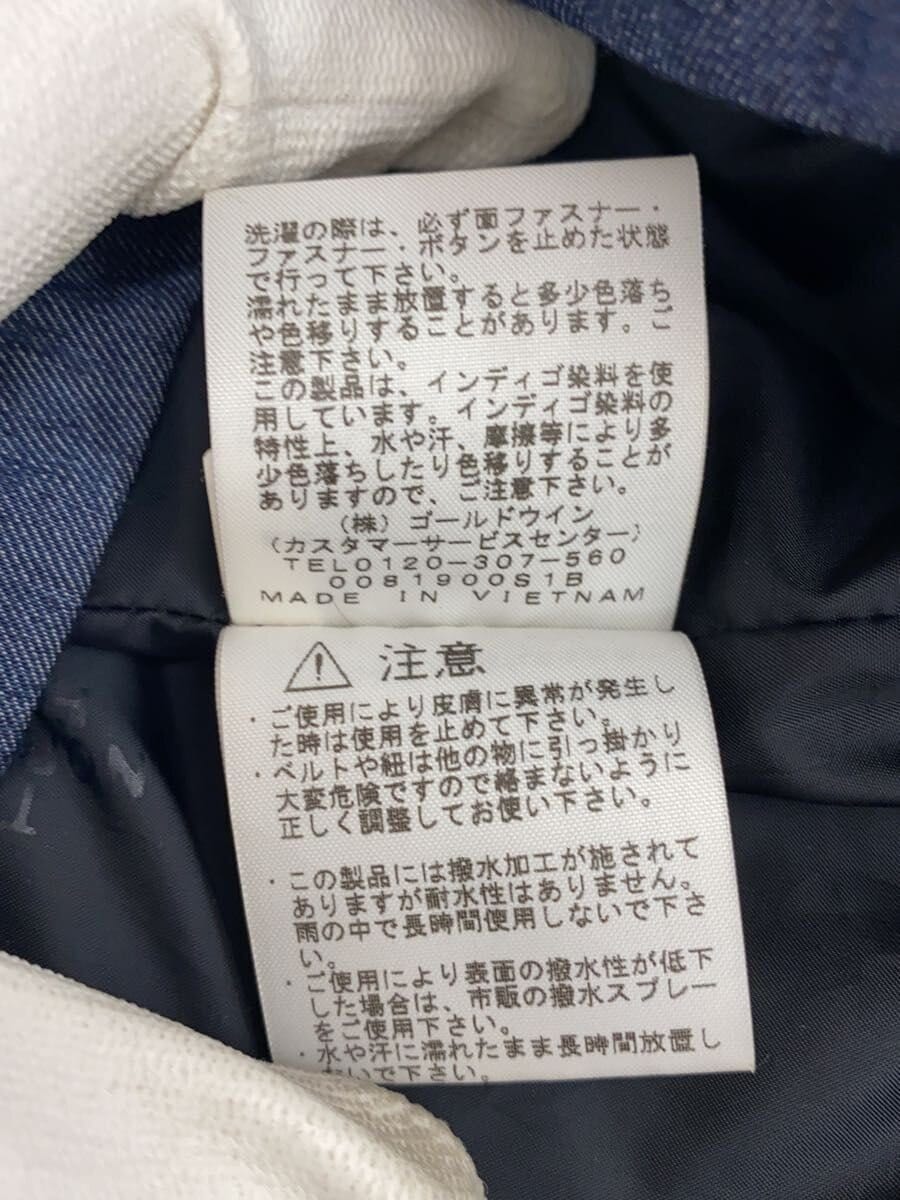 洗濯の際は、必ず面ファスナー・
ファスナー・ボタンを止めた状態
で行って下さい。
濡れたまま放置すると多少色落ち
や色移りすることがあります。ご
注意下さい。
この製品は、インディゴ染料を使
用しています。インディゴ染料の
特性上、水や汗、摩擦等により多
少色落ちしたり色移りすることが
ありますので、ご注意下さい。
(株) ゴールドウイン
(カスタマーサービスセンター)
TEL0120-307-560
0081900S1B
MADE IN VIETNAM
注意
・ご使用により皮膚に異常が発生し
た時は使用を止めて下さい。
・ベルトや紐は他の物に引っ掛かり
大変危険ですので絡まないように
正しく調整してお使い下さい。
・この製品には撥水加工が施されて
ありますが耐水性はありません。
雨の中で長時間使用しないで下さ
い。
・ご使用により表面の撥水性が低下
した場合は、市販の撥水スプレー
をご使用下さい。
・水や汗に濡れたまま長時間放置し
ないで下さい。